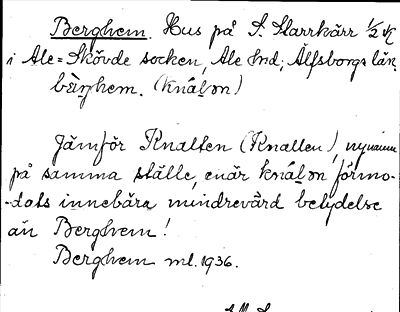 Berghem. Hus på S. Starrkärr 1/2 mtl
i Ale-Skövde socken, Ale hd; Älfsborgs län.
bæ̀rghem. (knál̥ən)
Jämför Knalten (Knallen), nynamn
på samma ställe, enär knál̥ən förmo-
-dats innebära mindrevärd betydelse
än Berghem!
Berghem ml. 1936.